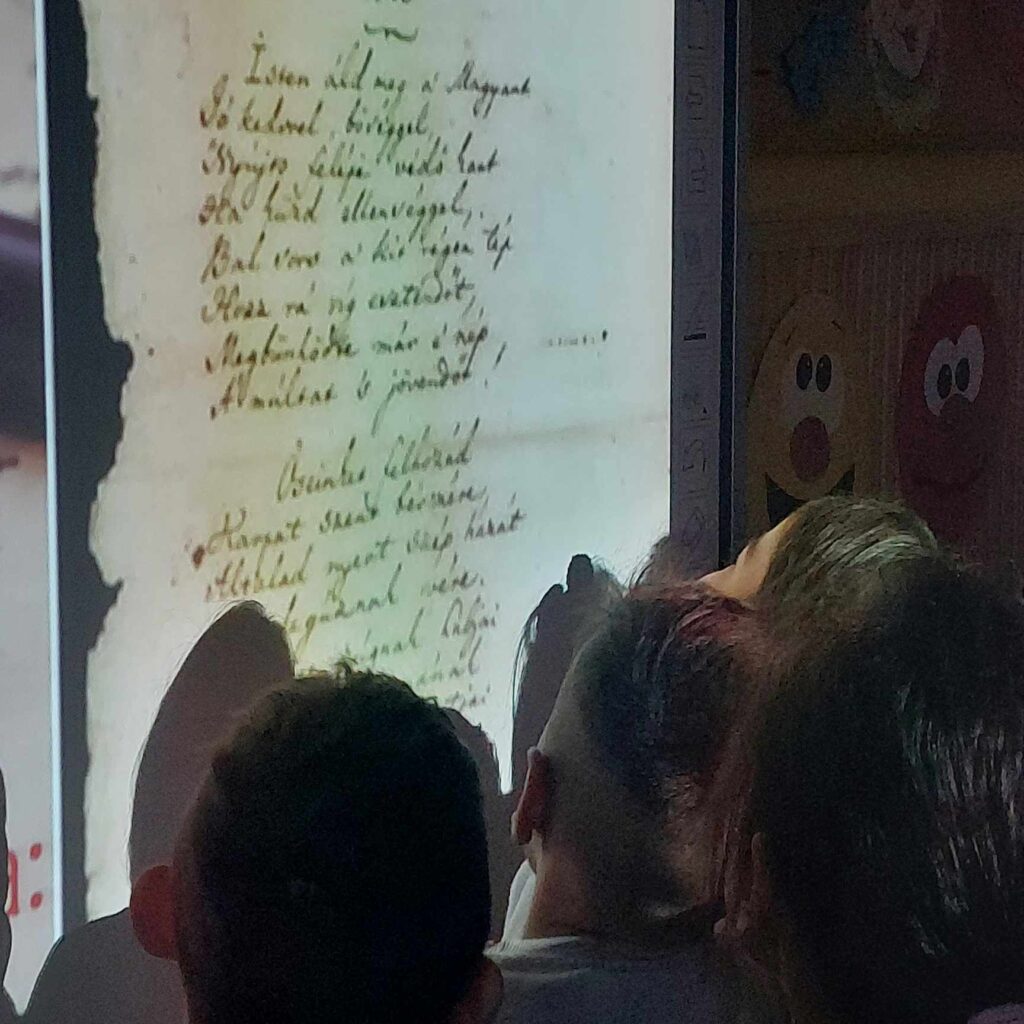 Isten áld meg a' Magyart
Jó kedvvel, bőséggel,
Nyújts feléje védő kart
Ha küzd ellenséggel;
Bal sors a' kit régen tép
Hozz rá víg esztendőt,
Megbünhödte már e' nép
A' multat 's jövendőt!
Őseinket felhozád
Kárpát szent bérczére,
Általad nyert szép hazát
guznak vére.
gnak habjai
nának
tjai
a: